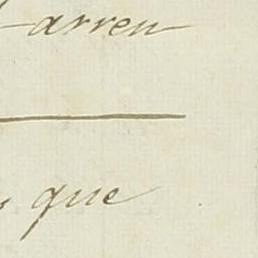 arren
que